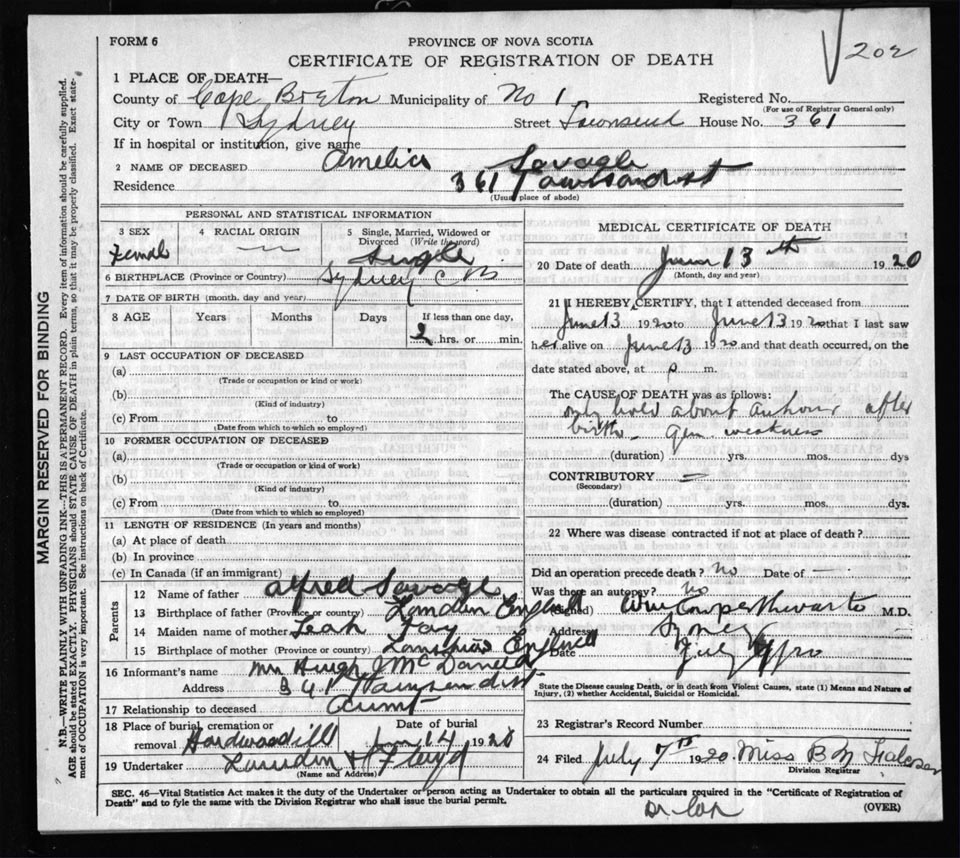 FORM 6
PROVINCE OF NOVA SCOTIA
202
CERTIFICATE OF REGISTRATION OF DEATH
1 PLACE OF DEATH—
County of Cape Breton Municipality of No 1 Registered No.
(For use of Registrar General only)
City or Town Sydney Street Townsend House No. 361
If in hospital or institution, give name
2 NAME OF DECEASED Amelia Savage
Residence 361 Townsend st
(Usual place of abode)
PERSONAL AND STATISTICAL INFORMATION
3 SEX Female
4 RACIAL ORIGIN —
5 Single, Married, Widowed or Divorced (Write the word) Single
6 BIRTHPLACE (Province or Country) Sydney C B
7 DATE OF BIRTH (month, day and year)
8 AGE Years Months Days If less than one day,
2 hrs. or min.
9 LAST OCCUPATION OF DECEASED
(a)
(Trade or occupation or kind or work)
(b)
(Kind of industry)
(c) From to
(Date from which to which so employed)
10 FORMER OCCUPATION OF DECEASED
(a)
(Trade or occupation or kind or work)
(b)
(Kind of industry)
(c) From to
(Date from which to which so employed)
11 LENGTH OF RESIDENCE (In years and months)
(a) At place of death
(b) In province
(c) In Canada (if an immigrant)
Parents
12 Name of father Alfred Savage
13 Birthplace of father (Province or country) London
14 Maiden name of mother Leah
15 Birthplace of mother (Province or country)
16 Informant's name Mrs Hugh McDaneld
Address
17 Relationship to deceased Aunt
18 Place of burial, cremation or removal Hardwoodill Date of burial 14 1920
19 Undertaker & Floyd
(Name and Address)
MEDICAL CERTIFICATE OF DEATH
20 Date of death June 13th 1920
(Month, day and year)
21 I HEREBY CERTIFY, that I attended deceased from
June 13 1920 to June 13 1920 that I last saw
her alive on June 13 1920 and that death occurred, on the
date stated above, at p m.
The CAUSE OF DEATH was as follows:
only lived about an hour after
birth - gen weakness
(duration) yrs. mos. dys
CONTRIBUTORY —
(Secondary)
(duration) yrs. mos. dys.
22 Where was disease contracted if not at place of death?
Did an operation precede death? no Date of —
Was there an autopsy? no
(Signed) M.D.
Address Sydney
Date July
State the Disease causing Death, or in death from Violent Causes, state (1) Means and Nature of
Injury, (2) whether Accidental, Suicidal or Homicidal.
23 Registrar's Record Number
24 Filed July 7th 1920. Miss B
Division Registrar
SEC. 46—Vital Statistics Act makes it the duty of the Undertaker or person acting as Undertaker to obtain all the particulars required in the "Certificate of Registration of
Death" and to fyle the same with the Division Registrar who shall issue the burial permit.
(OVER)
MARGIN RESERVED FOR BINDING
N.B.—WRITE PLAINLY WITH UNFADING INK—THIS IS A PERMANENT RECORD. Every item of information should be carefully supplied.
AGE should be stated EXACTLY. PHYSICIANS should STATE CAUSE OF DEATH in plain terms, so that it may be properly classified. Exact state-
ment of OCCUPATION is very important. See instructions on back of Certificate.